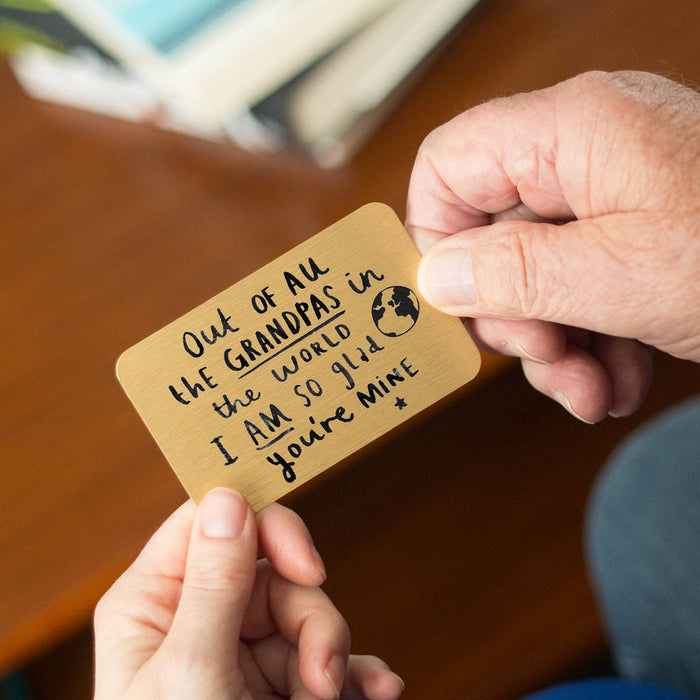 Out OF All
the GRANDPAS in
the WORLD
I AM SO glad
you're MINE